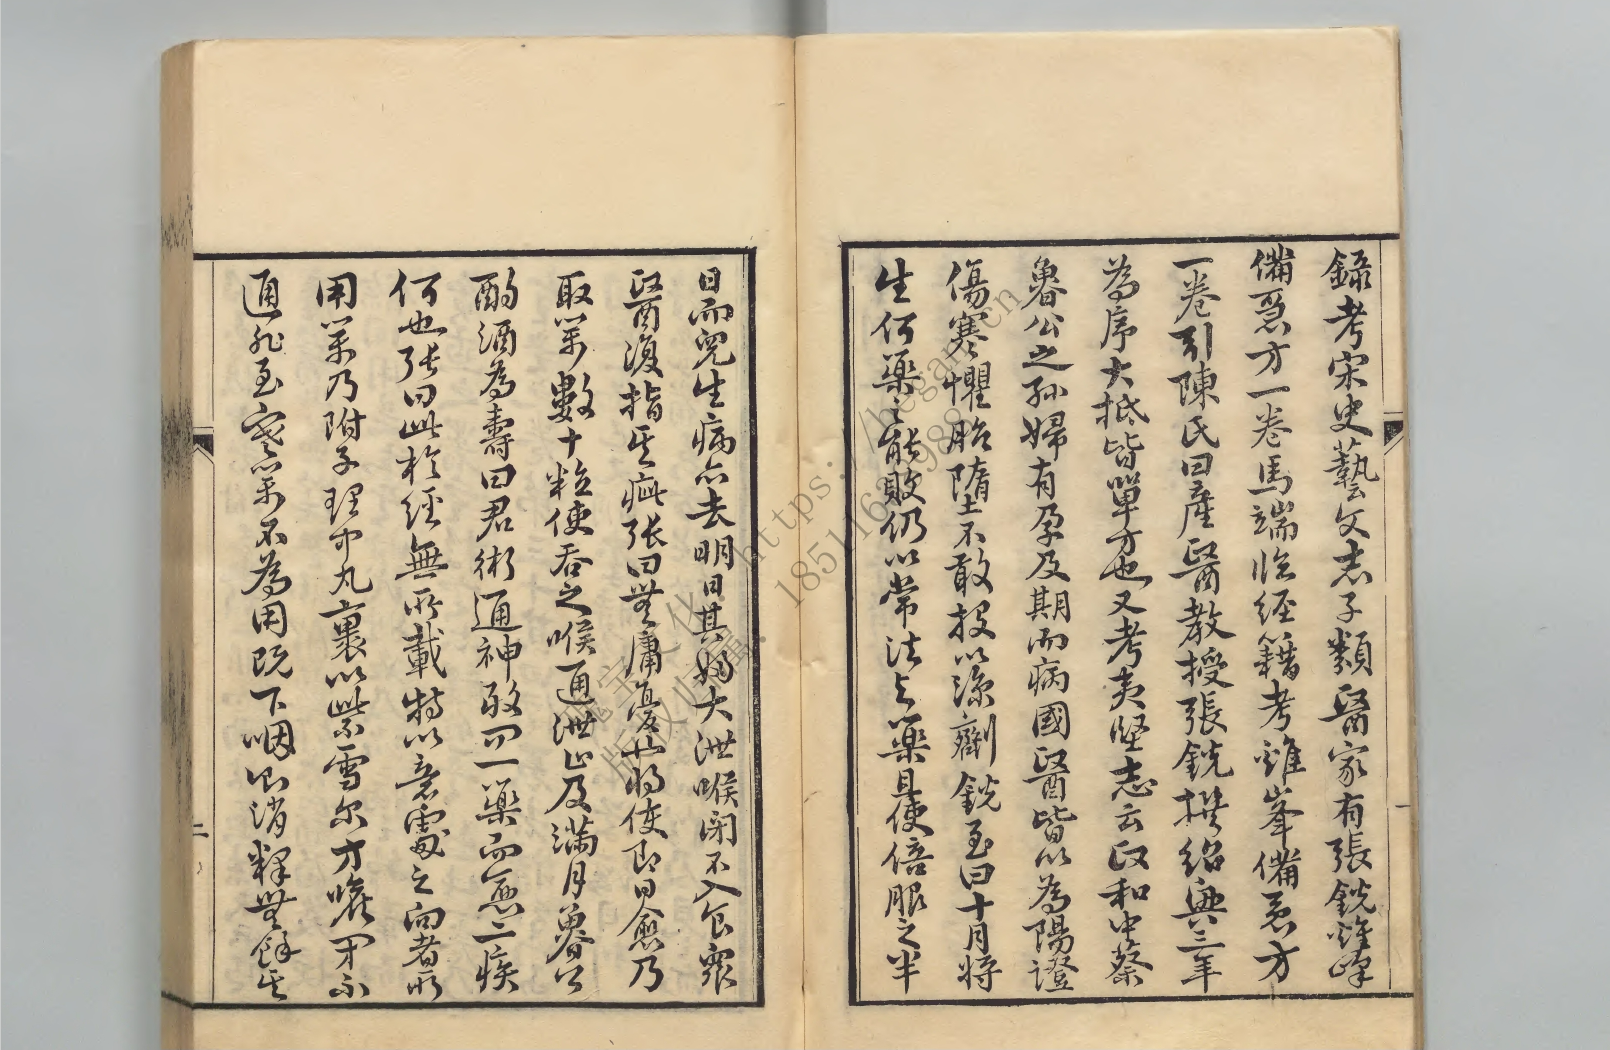 錄考宋史藝文志子類醫家有張銳雞峰
備急方一卷馬端臨經籍考雞峯備急方
一卷引陳氏曰產醫教授張銳撰紹興三年
為序大抵皆單方也又考夷堅志云政和中蔡
魯公之孫婦有孕及期而病國醫皆以為陽證
傷寒懼胎墮不敢投以涼劑銳至曰十月將
生何藥之能敗仍以常法与藥且使倍服之半
日而兒生病亦去明日其婦大泄喉閉不入食眾
醫復指其疵張曰無庸憂也將使即日愈乃
取藥數十粒使吞之喉通泄止及滿月魯公
酌酒為壽曰君術通神敢問一藥而愈二疾
何也張曰此於經無所載特以意處之向者所
用藥乃附子理中丸裹以紫雪爾方喉閉不
通非至寒藥不為用既下咽則消釋無餘其
一
二
https://hegar.cn